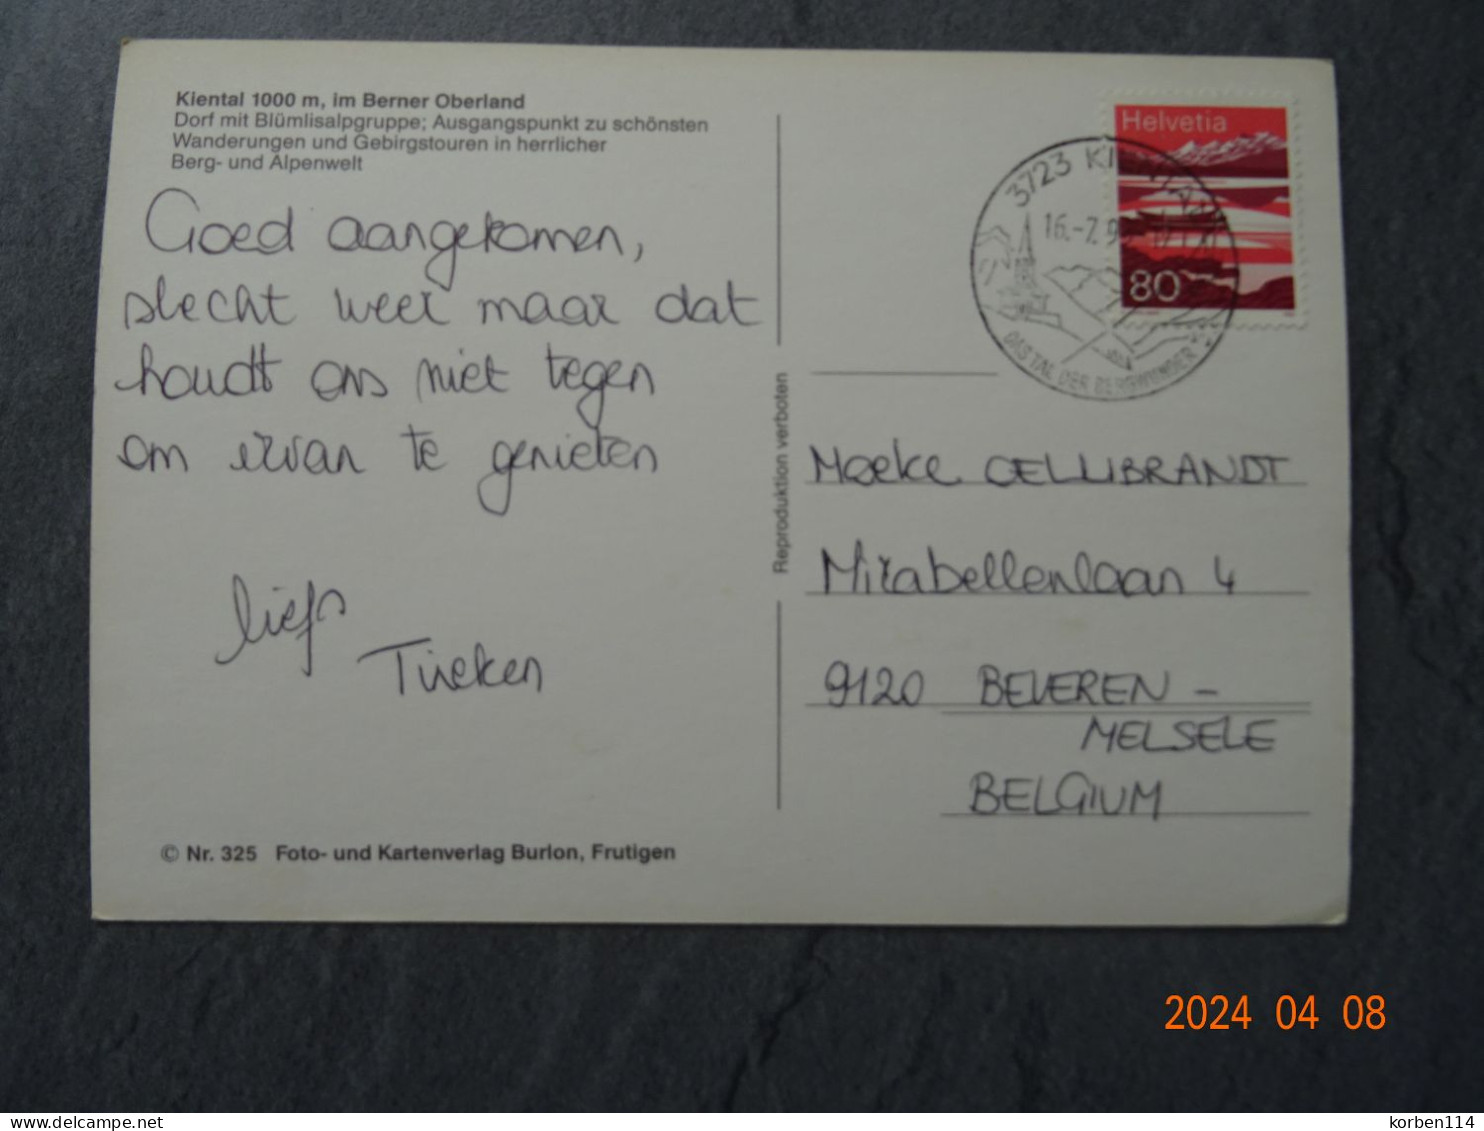 Kiental 1000 m, im Berner Oberland
Dorf mit Blümlisalpgruppe; Ausgangspunkt zu schönsten
Wanderungen und Gebirgstouren in herrlicher
Berg- und Alpenwelt
Goed aangekomen,
slecht weer maar dat
houdt ons niet tegen
om ervan te genieten
liefs
Tineken
© Nr. 325 Foto- und Kartenverlag Burlon, Frutigen
Reproduktion verboten
Helvetia
80
3723 KIENTAL
16.-7.9
DAS TAL DER BERGWUNDER
Moeke CELLIBRANDT
Mirabellenlaan 4
9120 BEVEREN -
MELSELE
BELGIUM
2024 04 08
delcampe.net
korben114